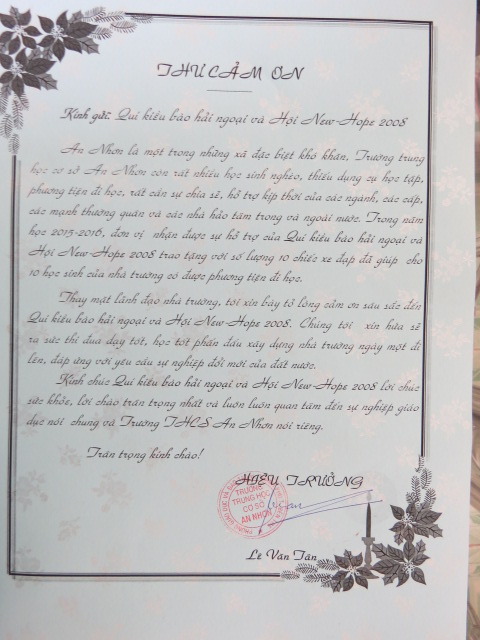 THƯ CẢM ƠN
Kính gửi: Quí kiều bào hải ngoại và Hội New-Hope 2008
An Nhơn là một trong những xã đặc biệt khó khăn, Trường trung
học cơ sở An Nhơn còn rất nhiều học sinh nghèo, thiếu dụng cụ học tập,
phương tiện đi học, rất cần sự chia sẽ, hỗ trợ kịp thời của các ngành, các cấp,
các mạnh thường quân và các nhà hảo tâm trong và ngoài nước. Trong năm
học 2015-2016, đơn vị nhận được sự hỗ trợ của Quí kiều bào hải ngoại và
Hội New-Hope 2008 trao tặng với số lượng 10 chiếc xe đạp đã giúp cho
10 học sinh của nhà trường có được phương tiện đi học.
Thay mặt lãnh đạo nhà trường, tôi xin bày tỏ lòng cảm ơn sâu sắc đến
Quí kiều bào hải ngoại và Hội New-Hope 2008. Chúng tôi xin hứa sẽ
ra sức thi đua dạy tốt, học tốt phấn đấu xây dựng nhà trường ngày một đi
lên, đáp ứng với yêu cầu sự nghiệp đổi mới của đất nước.
Kính chúc Quí kiều bào hải ngoại và Hội New-Hope 2008 lời chúc
sức khỏe, lời chào trân trọng nhất và luôn luôn quan tâm đến sự nghiệp giáo
dục nói chung và Trường THCS An Nhơn nói riêng.
Trân trọng kính chào!
HIỆU TRƯỞNG
TRƯỜNG
TRUNG HỌC
CƠ SỞ
AN NHƠN
Lê Văn Tân